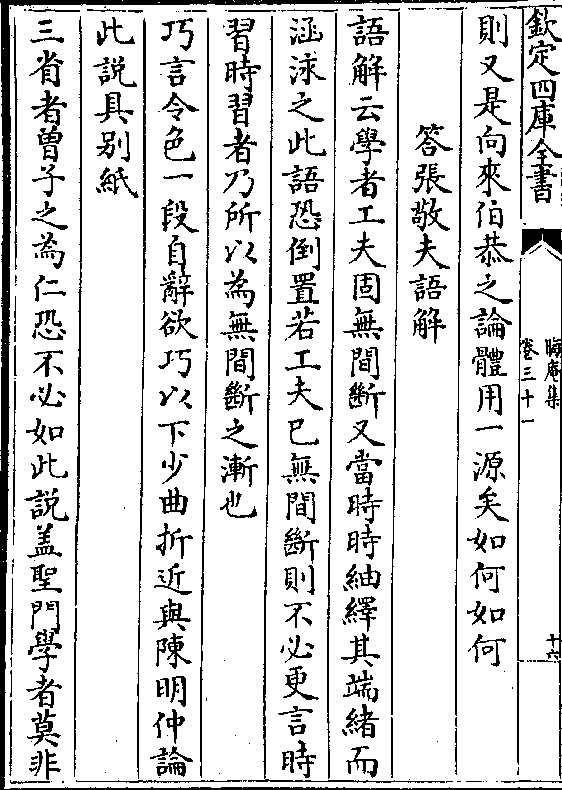 欽定四庫全書
晦庵集
卷三十一
十六
則又是向來伯恭之論體用一源矣如何如何
答張敬夫語解
語解云學者工夫固無間斷又當時時紬繹其端緒而
涵泳之此語恐倒置若工夫已無間斷則不必更言時
習時習者乃所以為無間斷之漸也
巧言令色一段自辭欲巧以下少曲折近與陳明仲論
此說具别紙
三省者曾子之為仁恐不必如此說盖聖門學者莫非